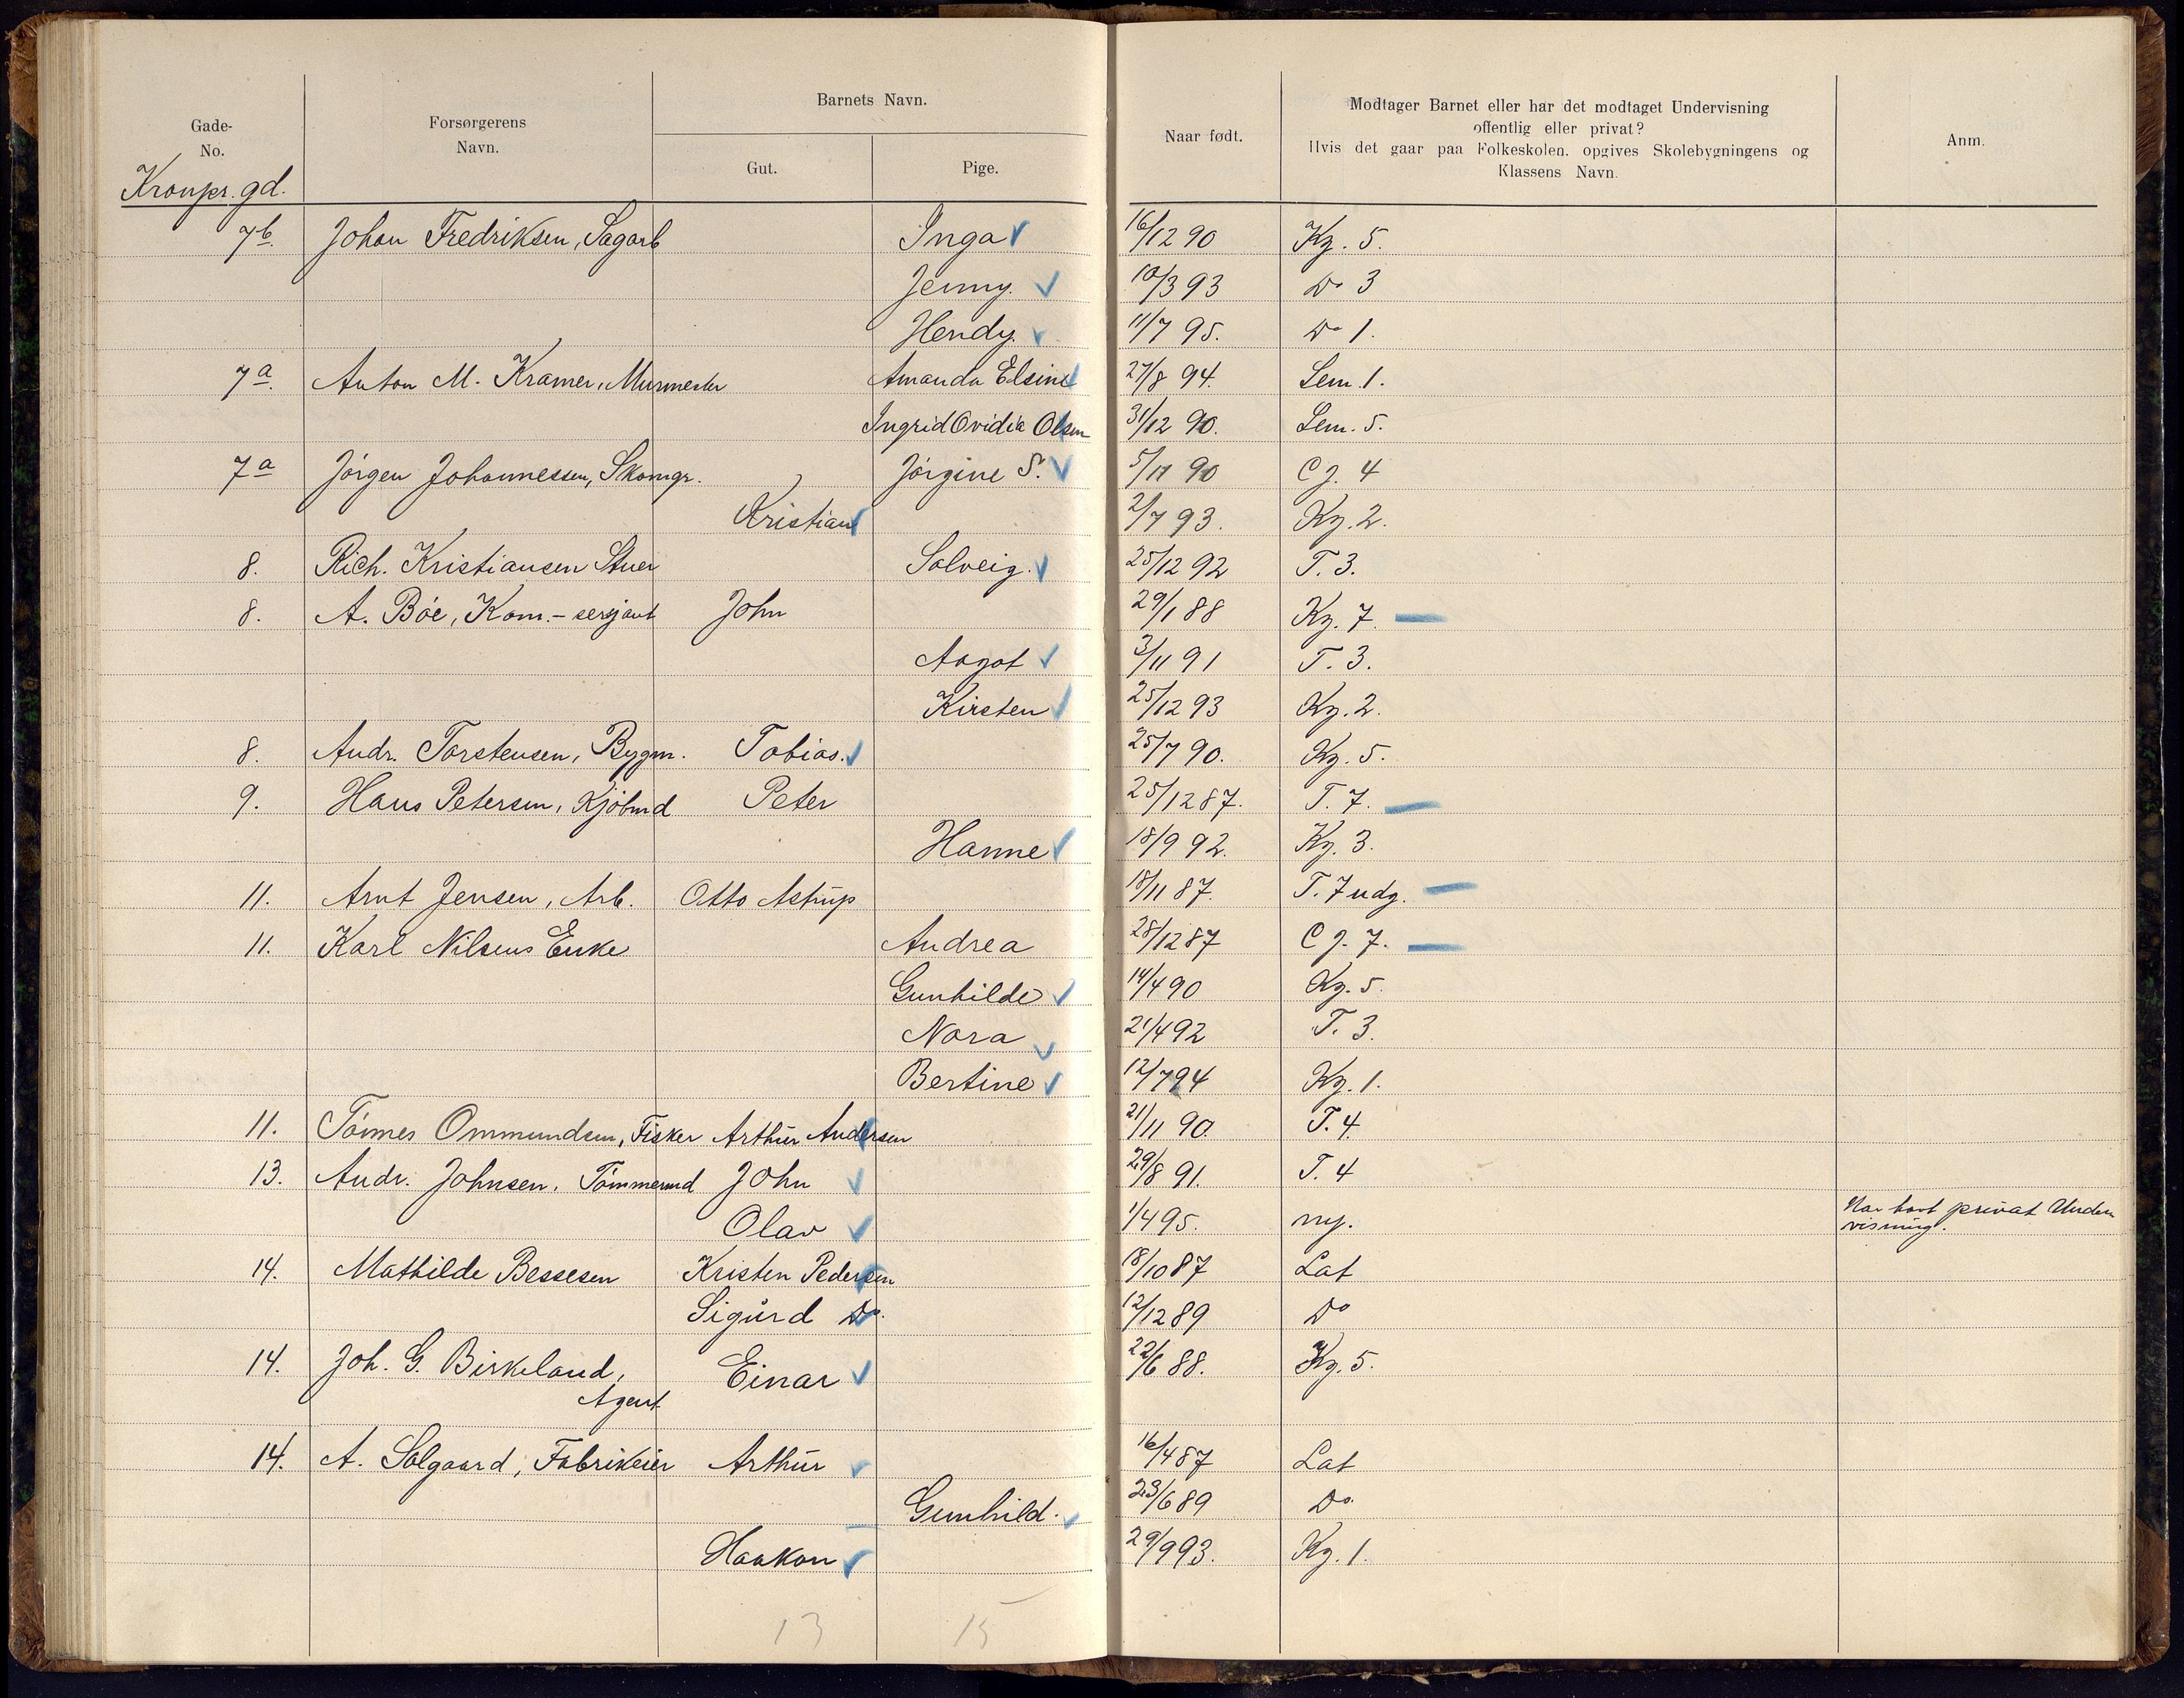 Gade-
No.
Forsørgerens
Navn.
Barnets Navn.
Gut.
Pige.
Naar født.
Modtager Barnet eller har det modtaget Undervisning
offentlig eller privat?
Hvis det gaar paa Folkeskolen, opgives Skolebygningens og
Klassens Navn.
Anm.
Kronpr. gd.
7b. Johan Fredriksen, Sagarb Inga 16/12 90 Kg. 5.
Jenny. 10/3 93 Do 3
Hendy. 11/7 95. Do 1.
7a. Anton M. Kramer, Murmester Amanda Elsine 27/8 94. Lem. 1.
Ingrid Ovidia Olsen 31/12 90. Lem. 5.
7a Jörgen Johannessen, Skomgr. Jörgine S. 5/11 90 C J. 4
Kristian 2/7 93. Kg. 2.
8. Rich. Kristiansen Stuer Solveig. 25/12 92 T. 3.
8. A. Böe, Kom.-sersjant John 29/1 88 Kg. 7.
Aagot 3/11 91 T. 3.
Kirsten 25/12 93 Kg. 2.
8. Andr. Torstensen, Bygm. Tobias. 25/7 90. Kg. 5.
9. Hans Petersen, Kjöbmd Peter 25/12 87. T. 7.
Hanne 18/9 92. Kg. 3.
11. Arnt Jensen, Arb. Otto Astrup 18/11 87. T. 7 udg.
11. Karl Nilsens Enke Andrea 28/12 87 C J. 7.
Gunhilde 14/4 90 Kg. 5.
Nora 21/4 92 T. 3.
Bertine 12/7 94 Kg. 1.
11. Tönnes Ommundsen, Fisker Arthur Andersen 21/11 90. T. 4.
13. Andr. Johnsen, Tömmermd John 29/8 91. T. 4
Olav 1/4 95. ny. Har havt privat Under
visning.
14. Mathilde Bessesen Kristen Pedersen 18/10 87 Lat
Sigurd Do. 12/12 89 Do
14. Joh. G. Birkeland, Einar 22/6 88. Kg. 5.
Agent
14. A. Solgaard, Fabrikeier Arthur 16/4 87 Lat
Gunhild. 23/6 89 Do.
Haakon 29/9 93. Kg. 1.
13 15